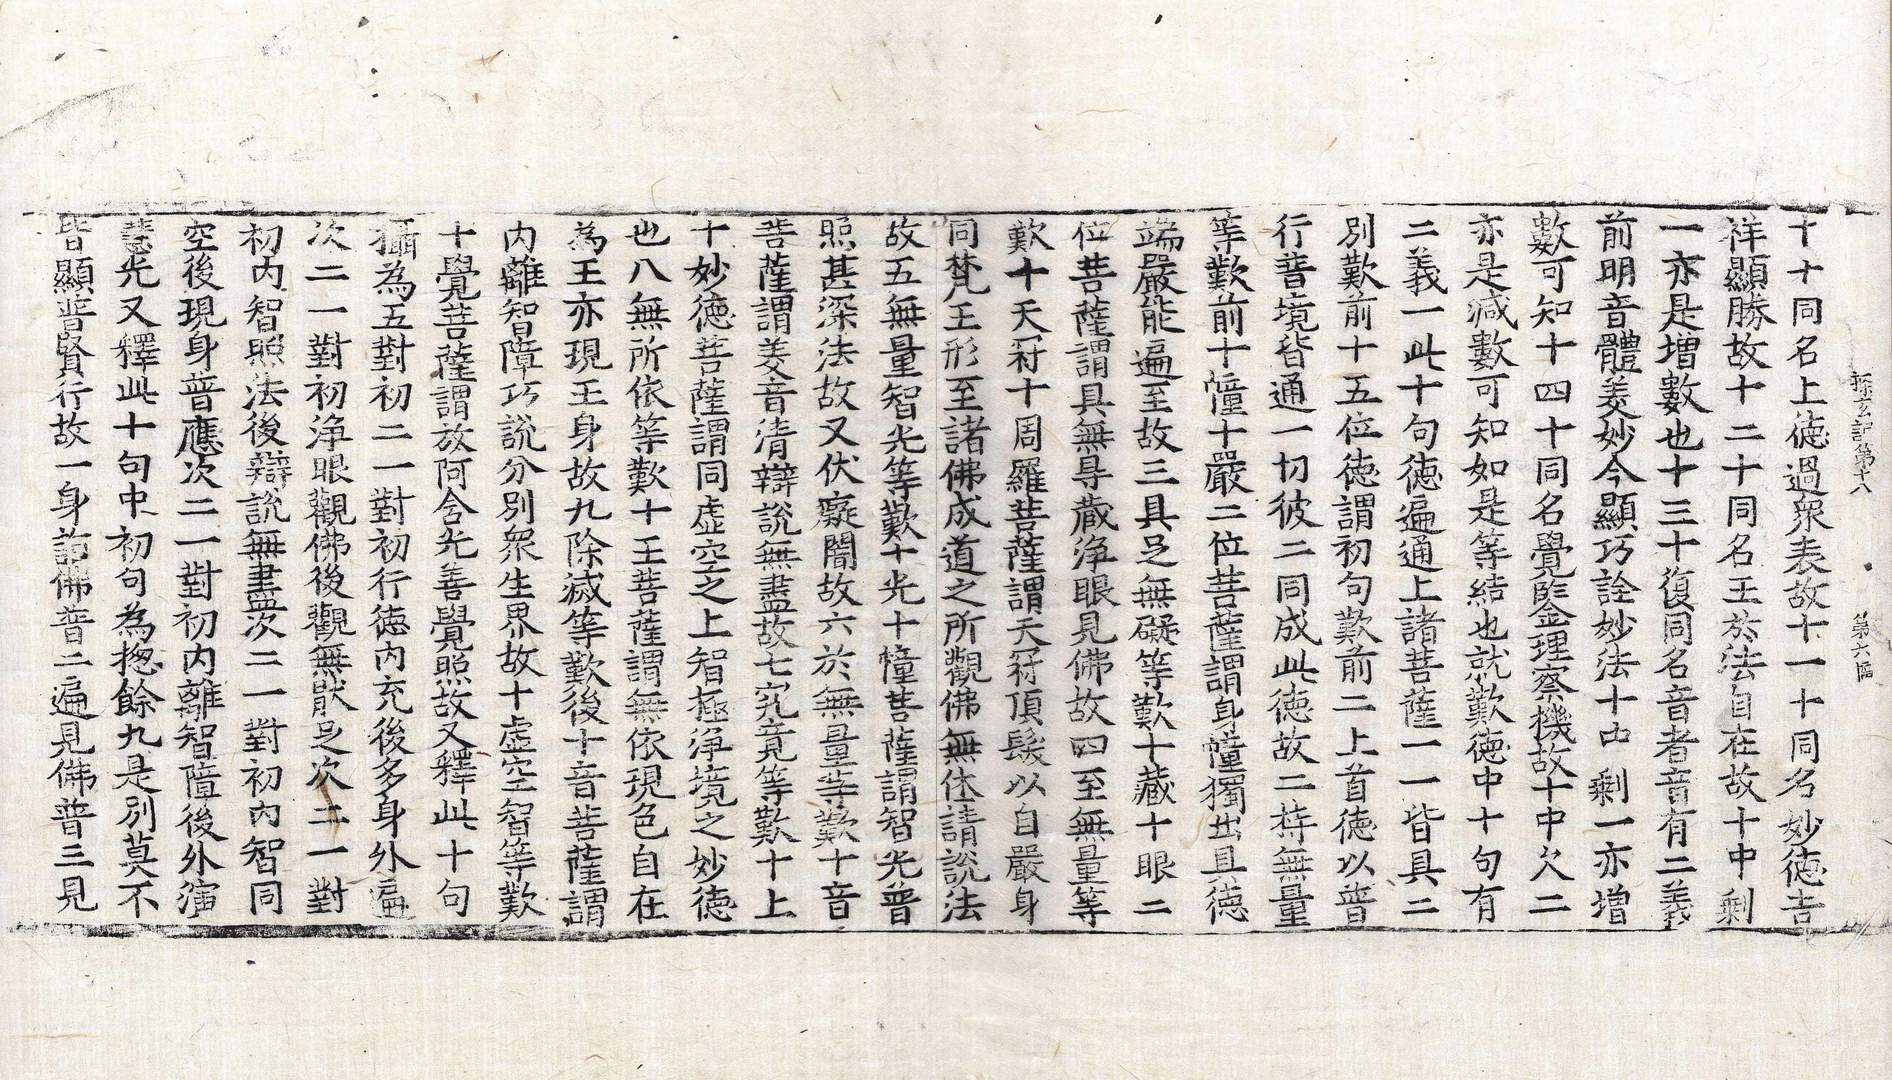 探玄記第十八 第六
十十同名上德過衆表故十一十同名妙德吉
祥顯勝故十二十同名王於法自在故十中剩
一亦是増數也十三十復同名音者音有二義
前明音體美妙今顯巧詮妙法十中剩一亦増
數可知十四十同名覺監金理察機故十中欠二
亦是減數可知如是等結也就歎德中十句有
二義一此十句德遍通上諸菩薩一一皆具二
別歎前十五位德謂初句歎前二上首德以普
行普境皆通一切彼二同成此德故二持無量
等歎前十幢十嚴二位菩薩謂身幢獨出具德
端嚴能遍至故三具足無礙等歎十藏十眼二
位菩薩謂具無㝵藏浄眼見佛故四至無量等
歎十天冠十周羅菩薩謂天冠頂髮以自嚴身
同梵王形至諸佛成道之所觀佛無休請說法
故五無量智光等歎十光十幢菩薩謂智光普
照甚深法故又伏癡闇故六於無量等歎十音
菩薩謂美音清辯說無盡故七究竟等歎十上
十妙德菩薩謂同虛空之上智極浄境之妙德
也八無所依等歎十王菩薩謂無依現色自在
為王亦現王身故九除滅等歎後十音菩薩謂
内離智障巧說分別衆生界故十虛空智等歎
十覺菩薩謂放阿含光善覺照故又釋此十句
攝為五對初二一對初行德内充後多身外遍
次二一對初浄眼觀佛後觀無猒足次二一對
初内智照法後辯說無盡次二一對初内智同
空後現身普應次二一對初内離智障後外演
慧光又釋此十句中初句為揔餘九是別莫不
皆顯普賢行故一身詣佛普二遍見佛普三見